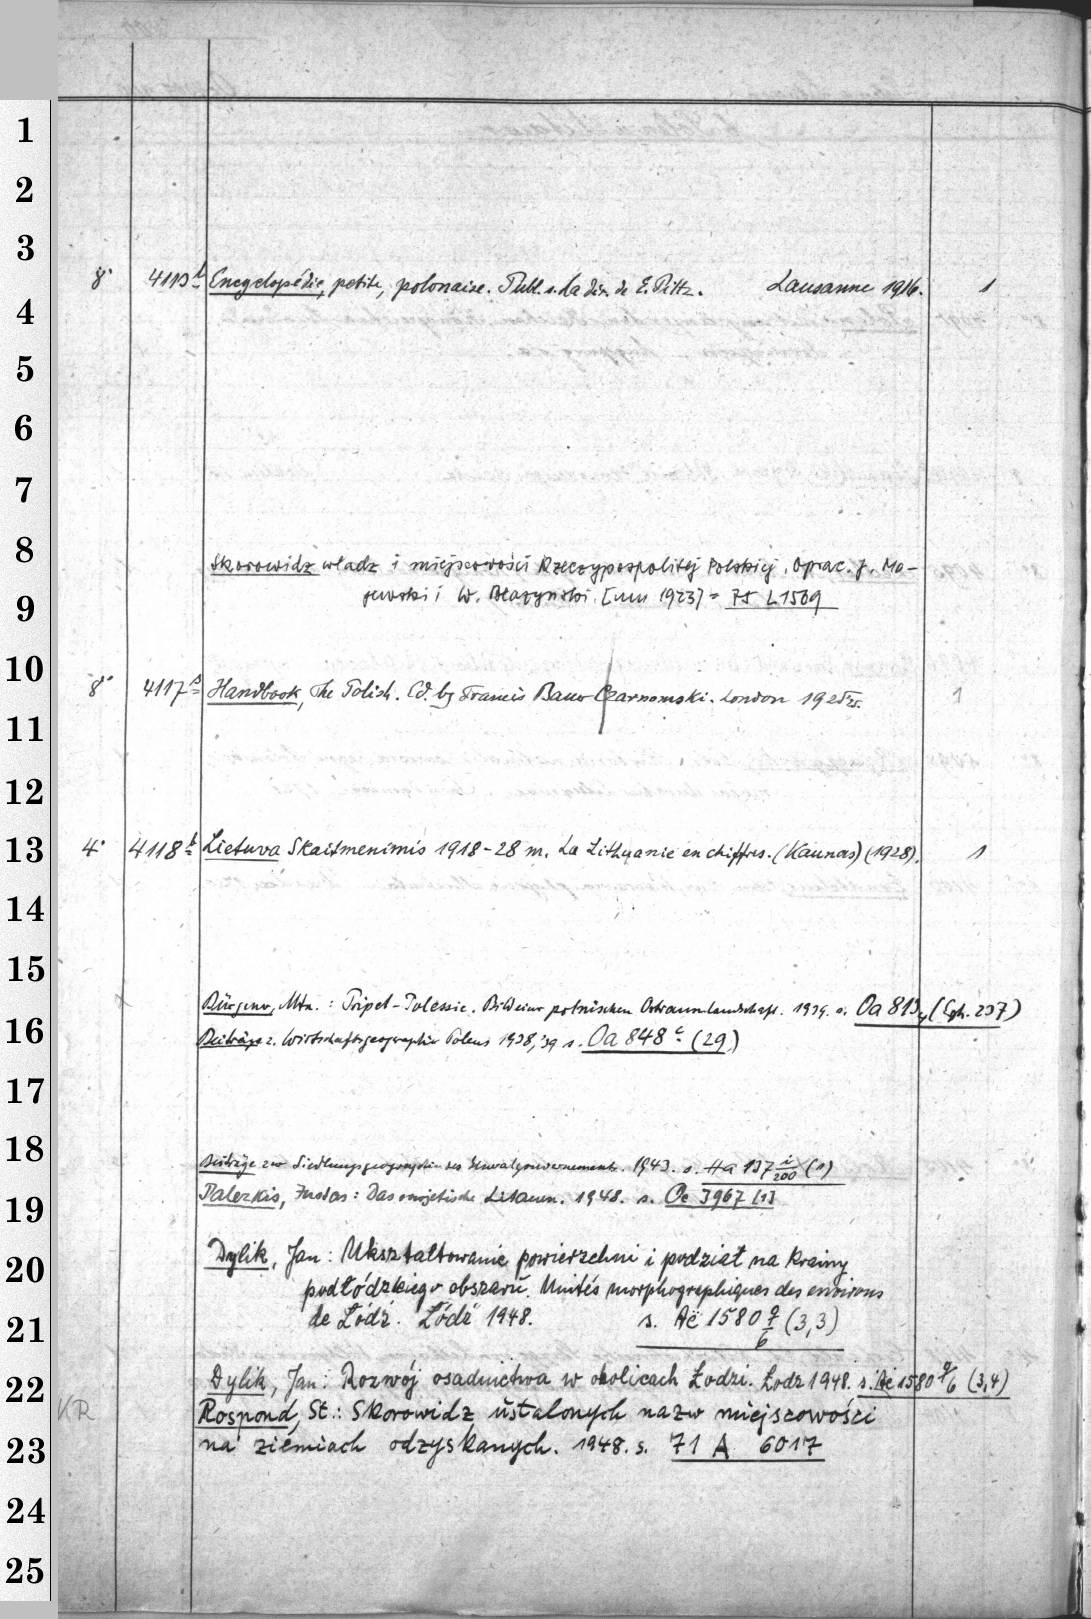 1
2
3
8° 4113 b Encyclopédie, petite, polonaise. Publ. s. la dir. de E. Piltz. Lausanne 1916. 1
4
5
6
7
8
Skorowidz władz i miejscowości Rzeczypospolitej Polskiej. Oprac. J. Mo-
9
jewski i W. Błażyński. 1923] = 75 L 1569
10
8° 4117 Handbook, The Polish. Ed. by Francis Bauer Czarnomski. London 1925. 1
11
12
13 4° 4118 b Lietuva Skaitmenimis 1918-28 m. La Lithuanie en chiffres. (Kaunas) (1928). 1
14
15
Bürgener, Mtn.: Pripet-Polessie. Bild einer polnischen Ostraumlandschaft. 1939. s. Oa 813 (Egh. 237)
16 Beiträge z. Wirtschaftsgeographie Polens 1938,'39 s. Oa 848 c (29)
17
18
Beiträge zur Siedlungsgeographie des Generalgouvernements. 1943. s. Ha 137 i/200 (1)
19 Paleckis, Justas: Das sowjetische Litauen. 1948. s. Oe 3967 [1]
Dylik, Jan: Ukształtowanie powierzchni i podział na krainy
20 podłódzkiego obszaru. Unités morphographiques des environs
21 de Łódź. Łódź 1948. s. Ač 1580 9/6 (3,3)
22 Dylik, Jan: Rozwój osadnictwa w okolicach Łodzi. Łodz 1948. s. Ač 1580 9/6 (3,4)
KR Rospond, St.: Skorowidz ustalonych nazw miejscowości
23 na ziemiach odzyskanych. 1948. s. 71 A 6017
24
25